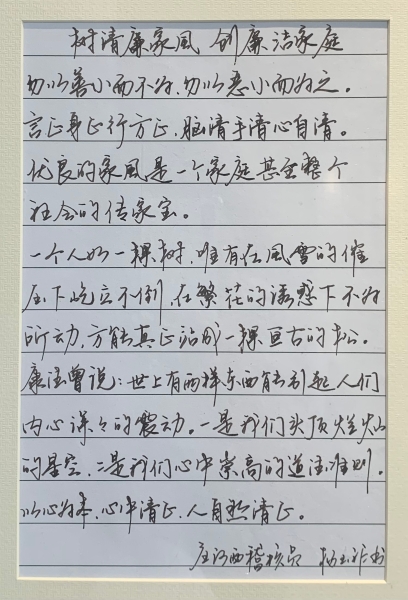 树清廉家风 创廉洁家庭
勿以善小而不为,勿以恶小而为之。
言正身正行方正,脑清手清心自清。
优良的家风是一个家庭甚至整个
社会的传家宝。
一个人如一棵树,唯有在风雪的催
压下屹立不倒,在繁花的诱惑下不为
所动,方能真正站成一棵亘古的松。
康德曾说:世上有两样东西能引起人们
内心深深的震动。一是我们头顶灿烂
的星空,二是我们心中崇高的道德准则。
以心为本,心中清正,人自然清正。
庄河西稽核员